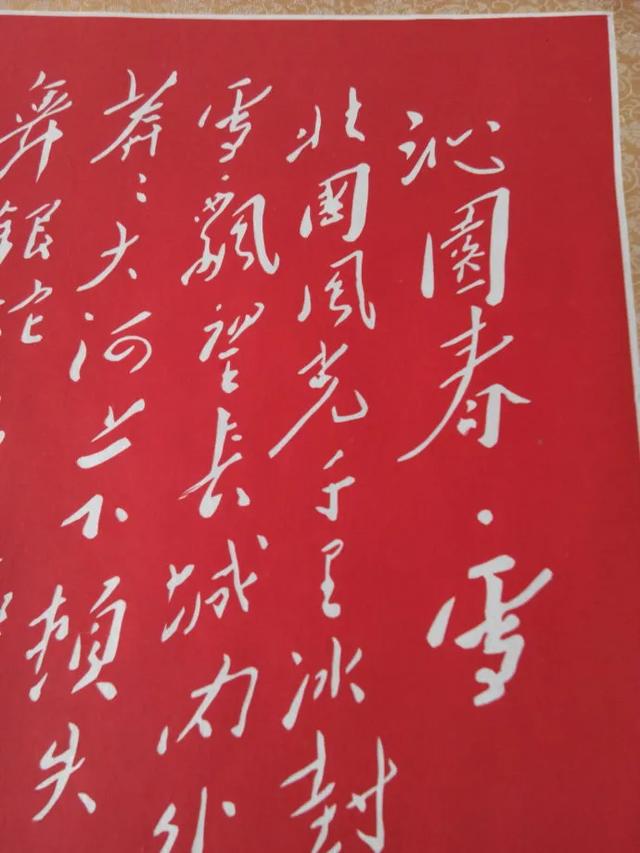 沁園春·雪
北國風光千里冰封
雪飄望長城內外
莽〻大河上下頓失
舞銀蛇